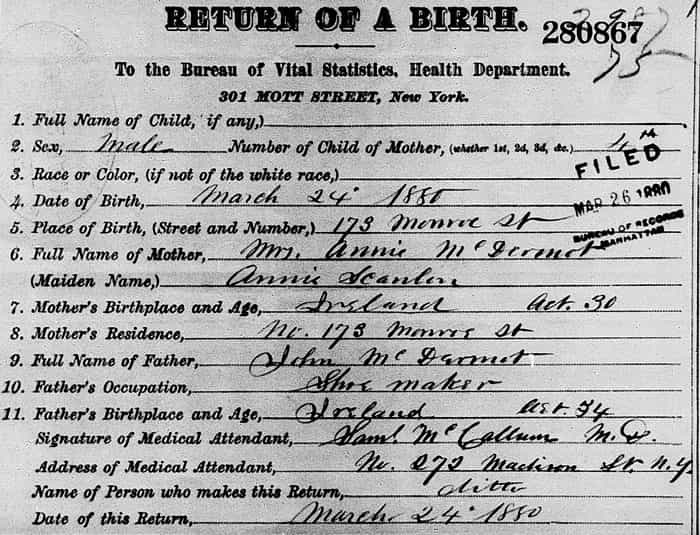 RETURN OF A BIRTH. 280867
To the Bureau of Vital Statistics, Health Department.
301 MOTT STREET, New York.
1. Full Name of Child, if any,)
2. Sex, Male Number of Child of Mother, (whether 1st, 2d, 3d, &c.) 4
FILED
3. Race or Color, (if not of the white race,)
4. Date of Birth, March 24 1880
MAR 26 1880
5. Place of Birth, (Street and Number,) 173 Monroe St
BUREAU OF RECORDS
MANHATTAN
6. Full Name of Mother, Mrs. Annie McDermot
(Maiden Name,) Annie Scanlon
7. Mother's Birthplace and Age, Ireland Aet. 30
8. Mother's Residence, No. 173 Monroe St
9. Full Name of Father, John McDermot
10. Father's Occupation, Shoe maker
11. Father's Birthplace and Age, Ireland Aet. 34
Signature of Medical Attendant, Saml. McCallum M.D.
Address of Medical Attendant, No. 272 Madison St. N.Y.
Name of Person who makes this Return, ditto
Date of this Return, March 24 1880